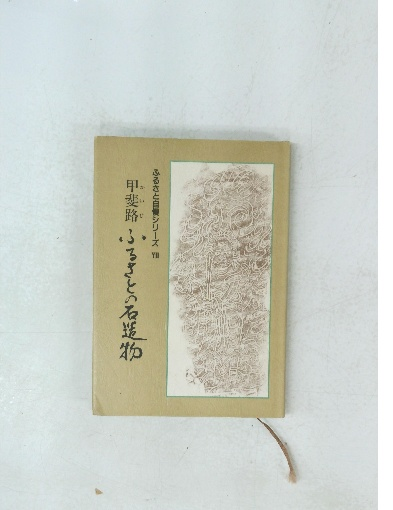 ふるさと自慢シリーズ Ⅷ
かいじ
甲斐路
ふるさとの石造物